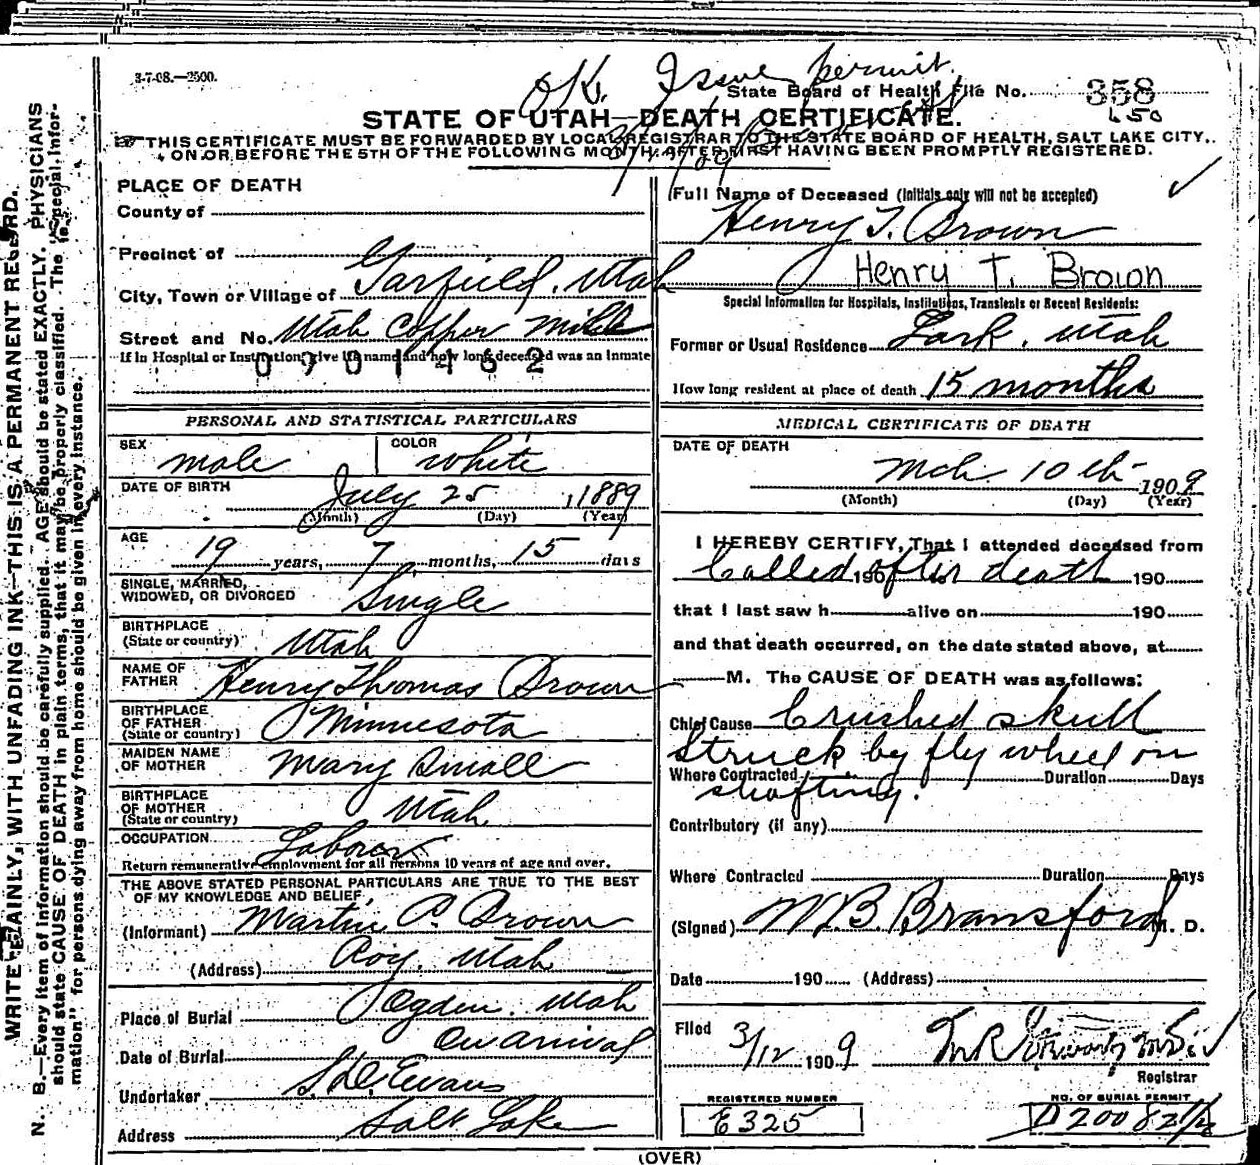 3-7-08.—2500.
OK. Issue permit.
State Board of Health File No. 358
450
STATE OF UTAH—DEATH CERTIFICATE.
THIS CERTIFICATE MUST BE FORWARDED BY LOCAL REGISTRAR TO THE STATE BOARD OF HEALTH, SALT LAKE CITY,
ON OR BEFORE THE 5TH OF THE FOLLOWING MONTH AFTER FIRST HAVING BEEN PROMPTLY REGISTERED.
WRITE PLAINLY, WITH UNFADING INK—THIS IS A PERMANENT RECORD.
N. B.—Every item of information should be carefully supplied. AGE should be stated EXACTLY. PHYSICIANS
should state CAUSE OF DEATH in plain terms, that it may be properly classified. The "Special Infor-
mation" for persons dying away from home should be given in every instance.
PLACE OF DEATH
County of
Precinct of
City, Town or Village of Garfield, Utah
Street and No. Utah Copper Mill
If in Hospital or Institution, give its name and how long deceased was an inmate
0901462
PERSONAL AND STATISTICAL PARTICULARS
SEX male COLOR white
DATE OF BIRTH July 25, 1889
(Month) (Day) (Year)
AGE 19 years, 7 months, 15 days
SINGLE, MARRIED,
WIDOWED, OR DIVORCED Single
BIRTHPLACE
(State or country) Utah
NAME OF
FATHER Henry Thomas Brown
BIRTHPLACE
OF FATHER
(State or country) Minnesota
MAIDEN NAME
OF MOTHER Mary Small
BIRTHPLACE
OF MOTHER
(State or country) Utah
OCCUPATION Laborer
Return remunerative employment for all persons 10 years of age and over.
THE ABOVE STATED PERSONAL PARTICULARS ARE TRUE TO THE BEST
OF MY KNOWLEDGE AND BELIEF,
(Informant) Martin P. Brown
(Address) Roy, Utah
Place of Burial Ogden, Utah
Date of Burial On arrival
Undertaker S. D. Evans
Address Salt Lake
Full Name of Deceased (Initials only will not be accepted)
Henry T. Brown
Henry T. Brown
Special Information for Hospitals, Institutions, Transients or Recent Residents:
Former or Usual Residence Lark, Utah
How long resident at place of death 15 months
MEDICAL CERTIFICATE OF DEATH
DATE OF DEATH
Mch 10th 1909
(Month) (Day) (Year)
I HEREBY CERTIFY, That I attended deceased from
Called 190 after death 190
that I last saw h alive on 190
and that death occurred, on the date stated above, at
M. The CAUSE OF DEATH was as follows:
Chief Cause Crushed skull
struck by fly wheel on
Where Contracted Duration Days
shafting.
Contributory (if any)
Where Contracted Duration Days
(Signed) M. B. Bransford M. D.
Date 190 (Address)
Filed 3/12 1909
Registrar
REGISTERED NUMBER
E325
NO. OF BURIAL PERMIT
D2008
(OVER)